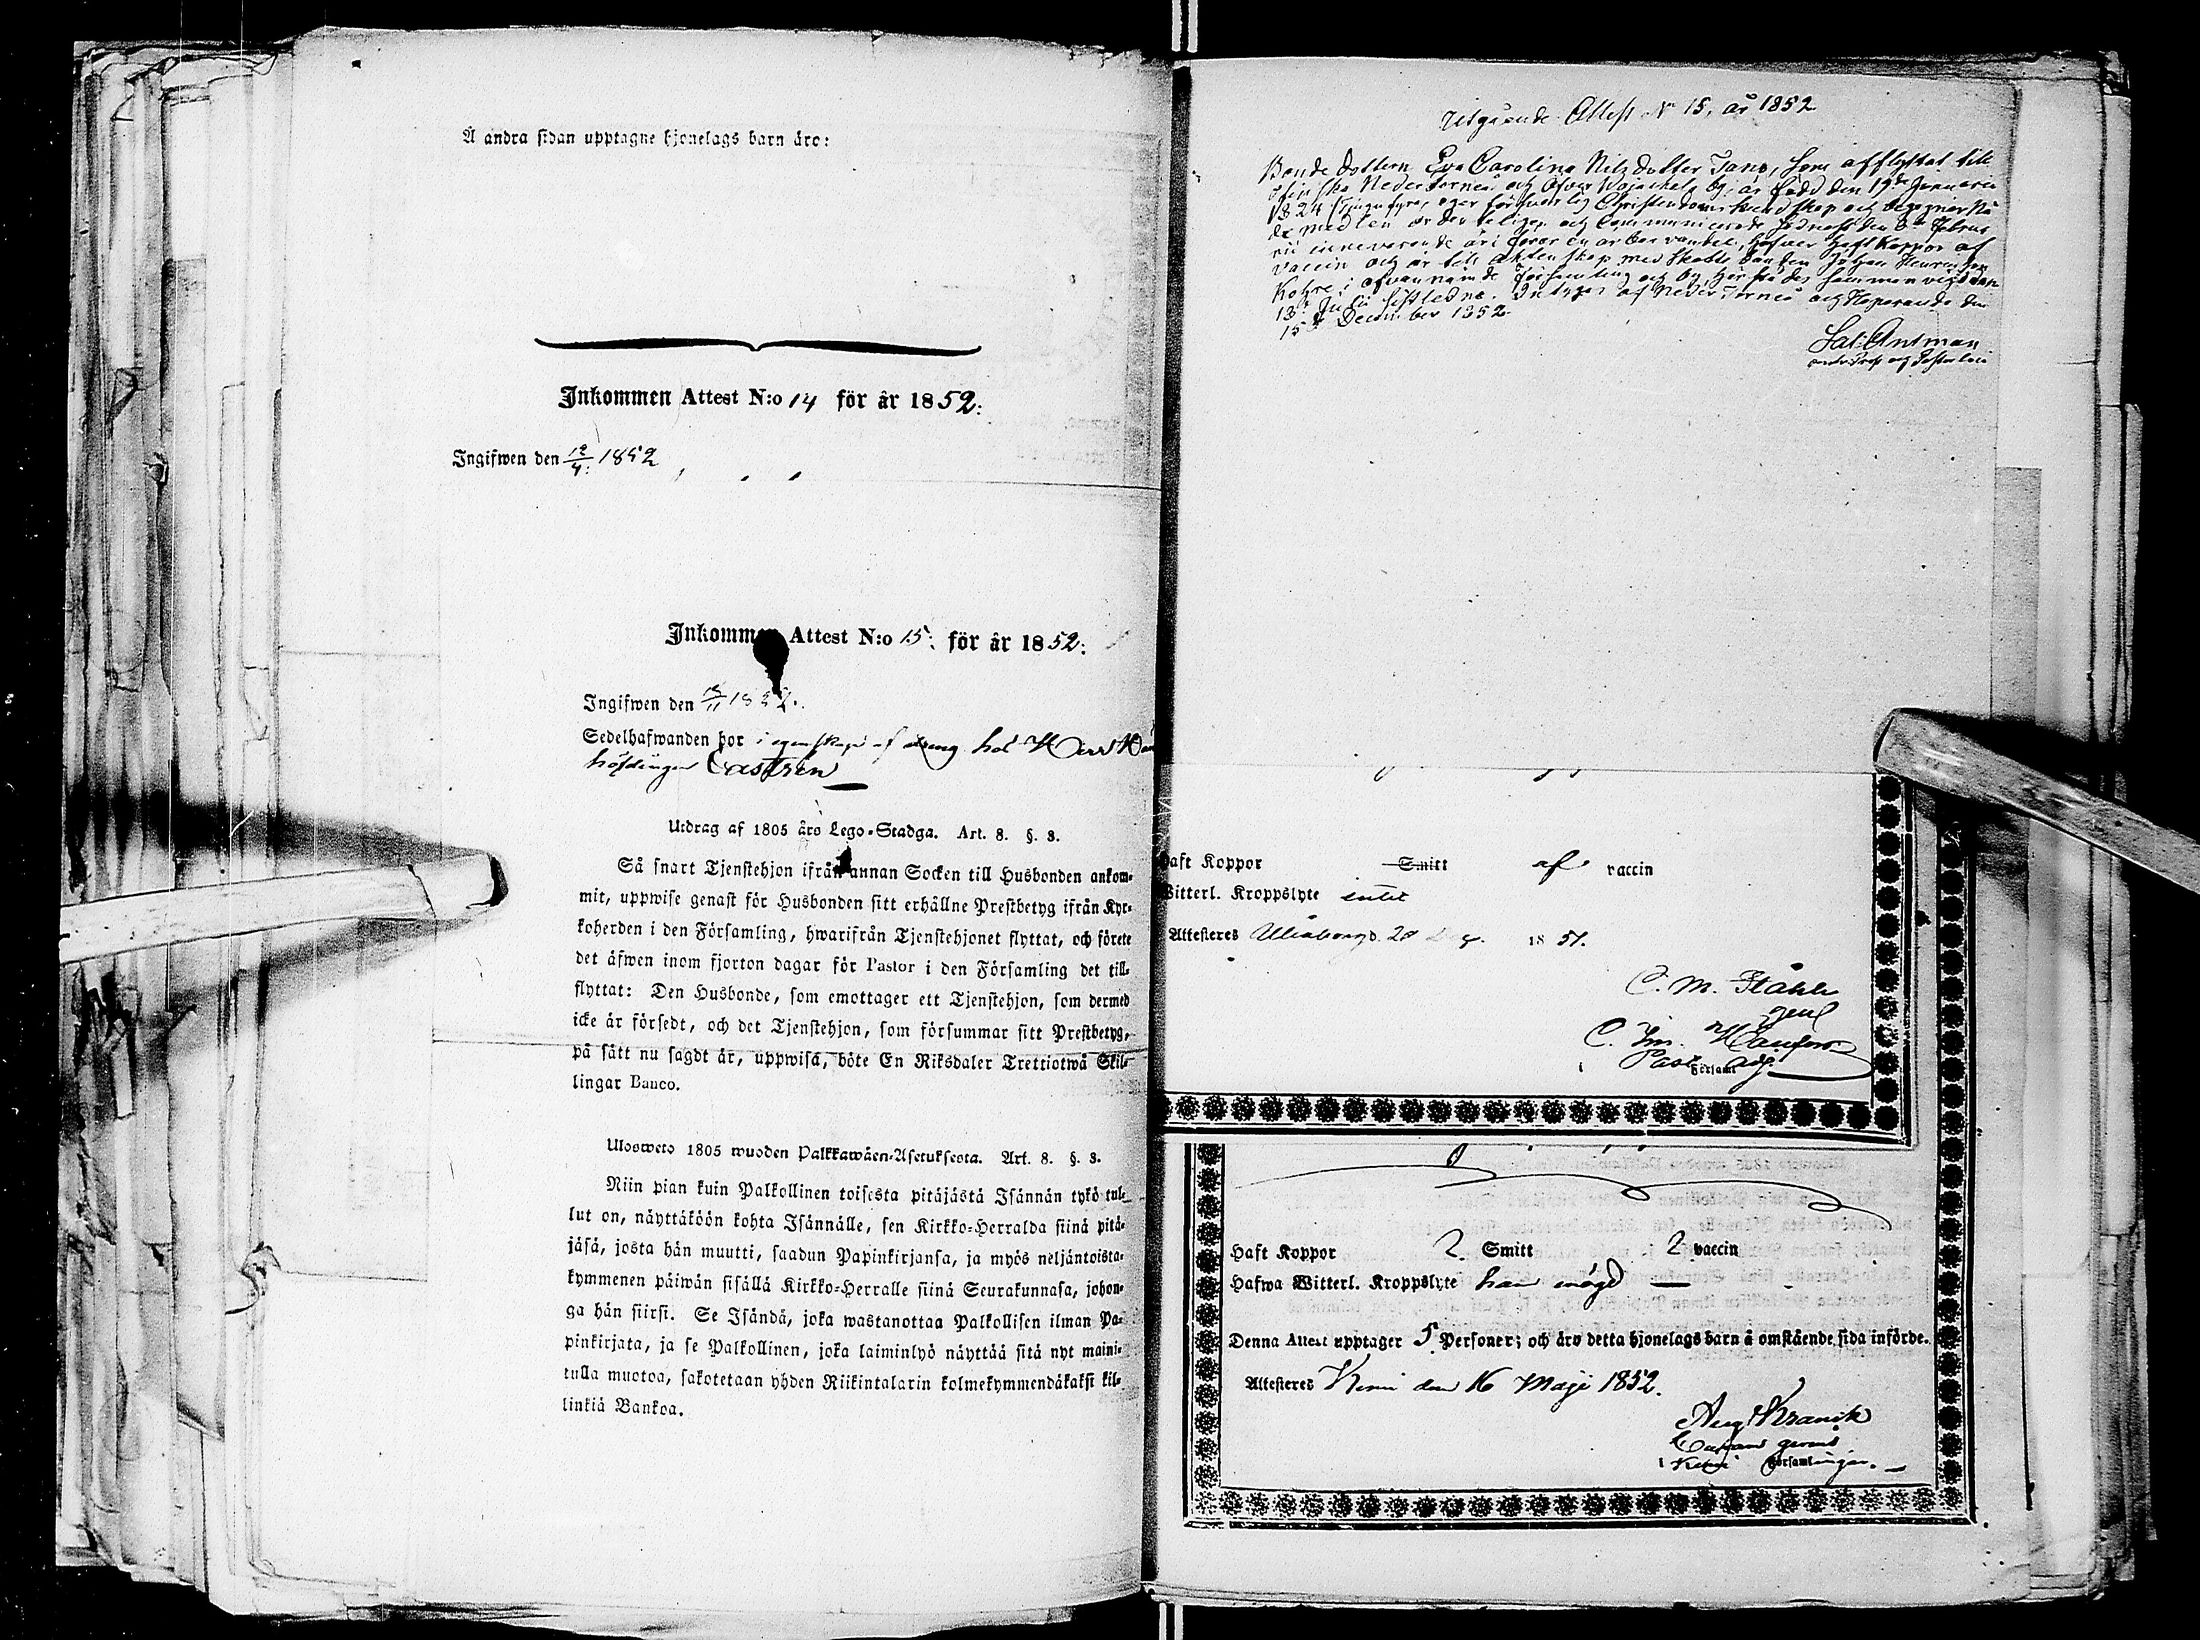 Å andra sidan upptagne hjonelags barn äro:
Inkommen Attest N:o 14 för år 1852:
Ingifwen den 12/4: 1852
Inkommen Attest N:o 15: för år 1852:
Ingifwen den /11 1852.
Sedelhafwanden bor i egenskap af dreng hos Herr
höfdingen Castrén
Utdrag af 1805 års Lego-Stadga. Art. 8. §. 3.
Så snart Tjenstehjon ifrån annan Socken till Husbonden ankom-
mit, uppwise genast för Husbonden sitt erhållne Prestbetyg ifrån Kyr-
koherden i den Församling, hwarifrån Tjenstehjonet flyttat, och förete
det äfwen inom fjorton dagar för Pastor i den Församling det till-
flyttat: Den Husbonde, som emottager ett Tjenstehjon, som dermed
icke är försedt, och det Tjenstehjon, som försummar sitt Prestbetyg,
på sätt nu sagdt är, uppwisa, böte En Riksdaler Trettiotwå Skil-
lingar Banco.
Ulosweto 1805 wuoden Palkkawäen-Asetuksesta. Art. 8. §. 3.
Niin pian kuin Palkollinen toisesta pitäjästä Isännän tykö tul-
lut on, näyttäköön kohta Isännälle, sen Kirkko-Herralda siinä pitä-
jäsä, josta hän muutti, saadun Papinkirjansa, ja myös neljäntoista-
kymmenen päiwän sisällä Kirkko-Herralle siinä Seurakunnasa, johon-
ga hän siirsi. Se Isändä, joka wastanottaa Palkollisen ilman Pa-
pinkirjata, ja se Palkollinen, joka laiminlyö näyttää sitä nyt maini-
tulla muotoa, sakotetaan yhden Riikintalarin kolmekymmendäkaksi kil-
linkiä Bankoa.
Utgående Attest N 15, år 1852
Bonde dottern Eva Carolina Nilsdotter Jano, som afflyttat till
Finska Neder Torneå och Öfver Wojackala by, är född den 19de Januarii
1824 (Tjugufyra, eger försvarlig Christendoms kundskap och begagnar Nå
demedlen ordenteligen och communicerade sednast den 8de Februa
rii innevarande år; förer en ärbar vandel, hafver haft Koppor af
vaccin och är till äktenskap med Skattebonden Johan Henriksson
Kohre i ofvannämde församling och by här städes samman vigd den
13de Julii sistledne. Intygas af Neder Torneå och Haparanda den
15de December 1852.
Sal. Antman
Haft Koppor Smitt af vaccin
Witterl. Kroppslyte intet
Attesteras Uleåborg d. 28 1851.
C. M. Ståhle
C.
Past. adj.
Församl
Haft Koppor 2 Smitt 2 vaccin
Hafwa Witterl. Kroppslyte
Denna Attest upptager 5 Personer; och äro detta hjonelags barn å omstående sida införde.
Attesteras Kemi den 16 Maji 1852.
Aug Kranck
i Kemi Församlingar.